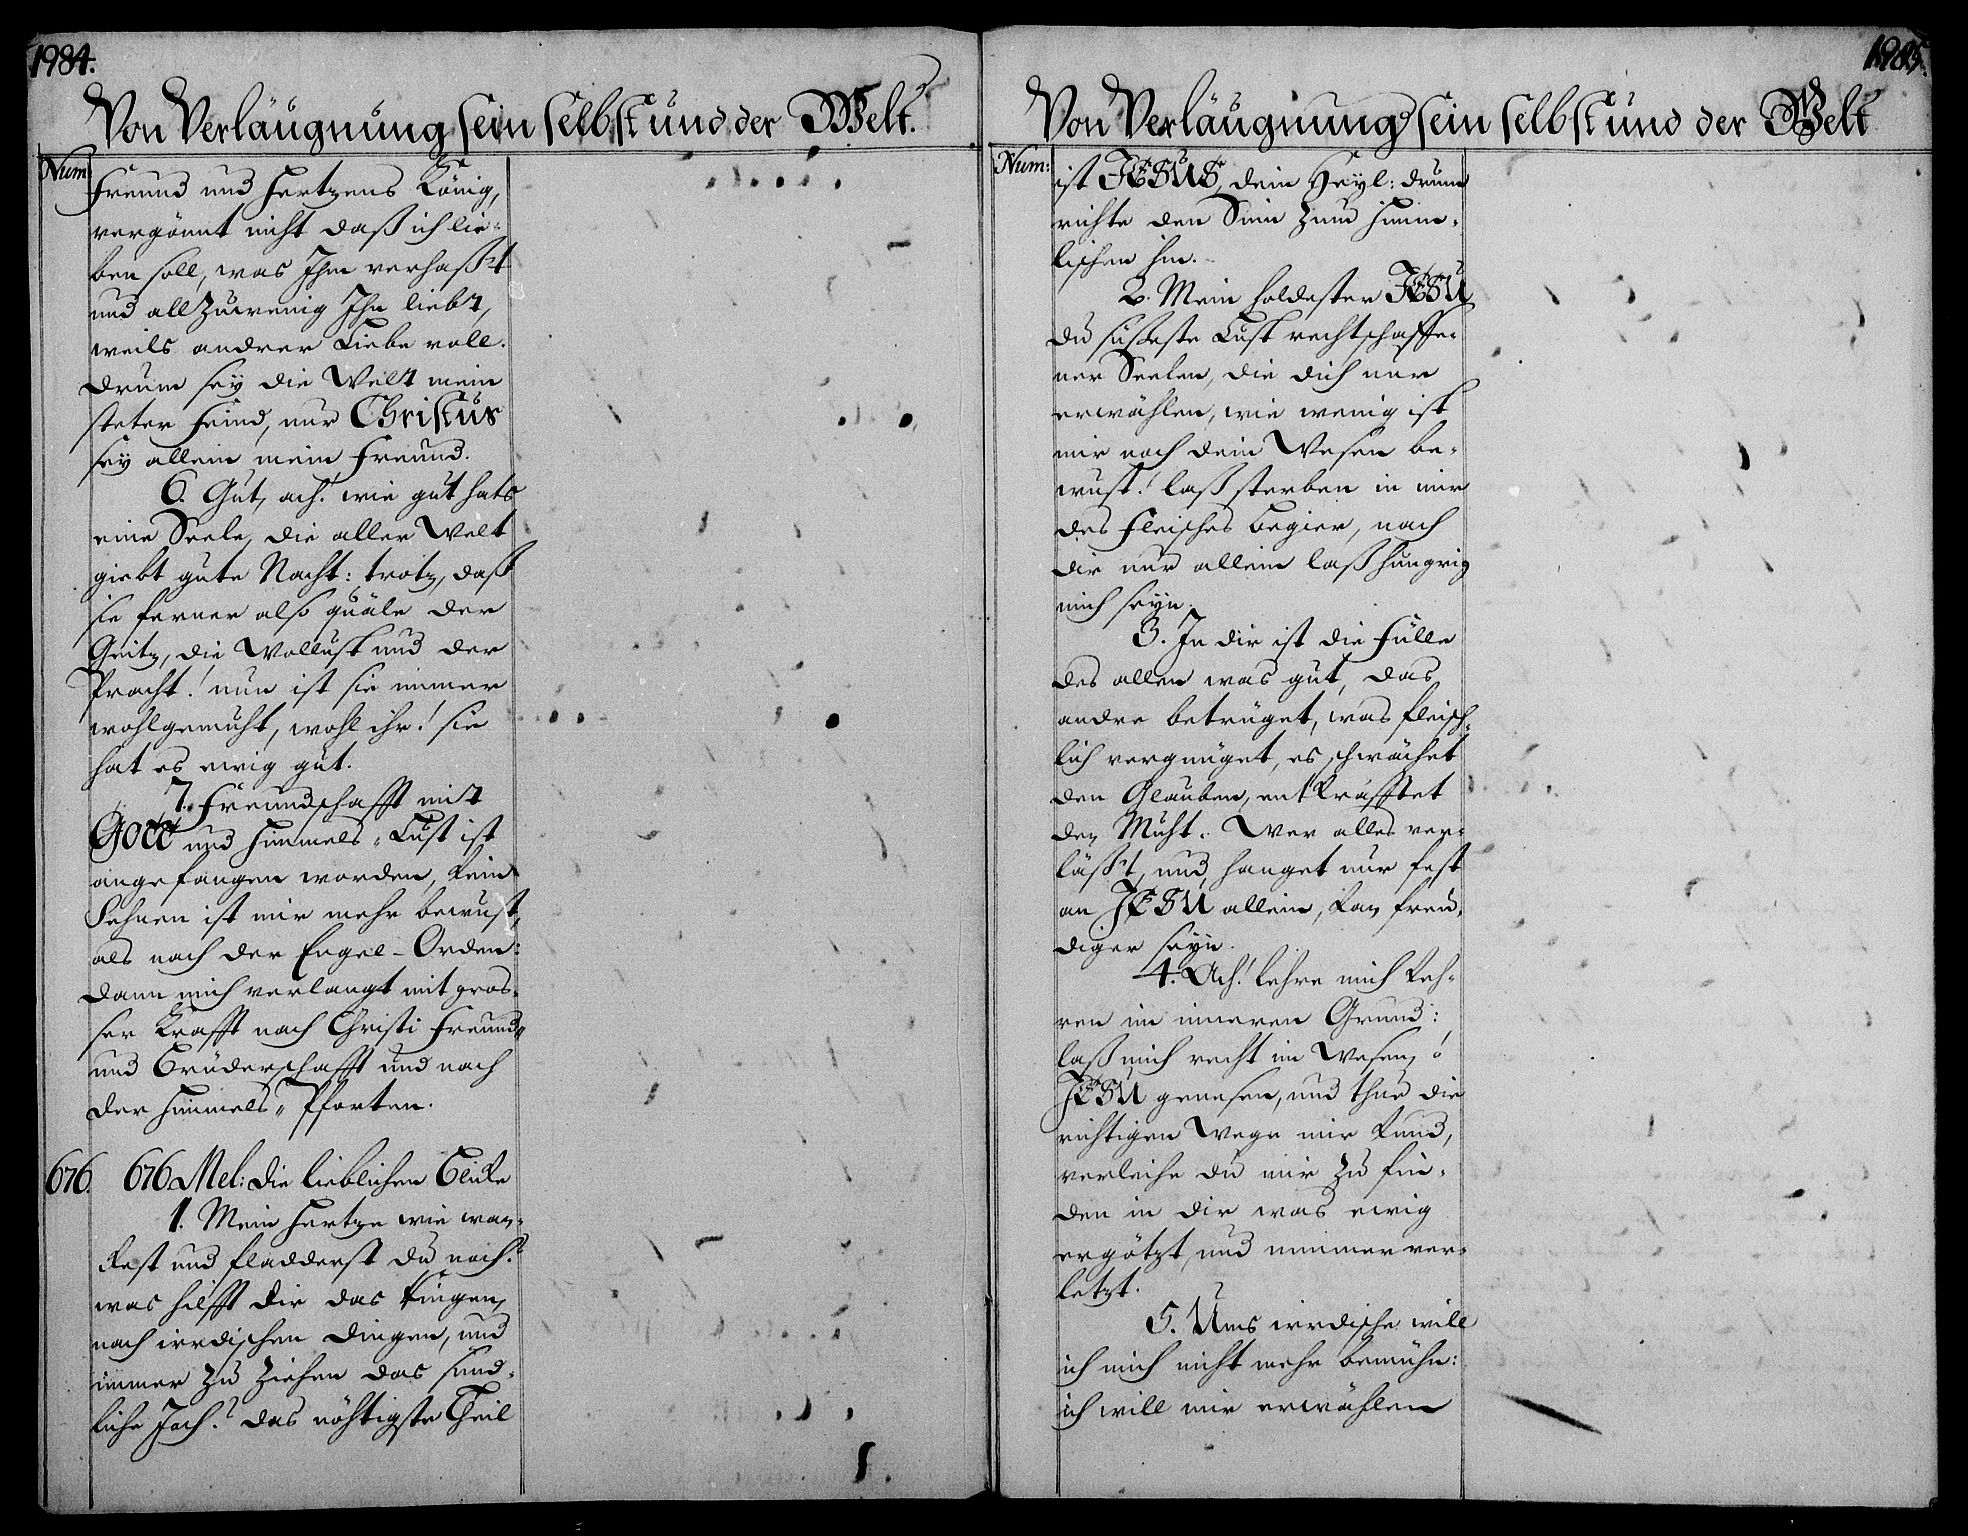 1984.
Von Verläugnung sein selbst und der Welt.
Num
Freund und Hertzens König,
vergönnt nicht daß ich lie-
ben soll, was Ihm verhaßt
und allzuwenig Ihn liebt,
weils andrer Liebe voll.
drum sey die Welt mein
steter Feind, nur Christus
sey allein mein Freund.
6. Gut, ach! wie gut hats
eine Seele, die aller Welt
giebt gute Nacht: trotz, daß
sie ferner also quäle der
Geitz, die Wollust und der
Pracht! nun ist sie immer
wohlgemuht, wohl ihr! sie
hat es ewig gut.
7. Freundschafft mit
Gott und Himmels-Lust ist
angefangen worden, kein
Sehnen ist mir mehr bewust,
als nach der Engel-Orden:
dann mich verlangt mit gros-
ser Krafft nach Christi Freund-
und Brüderschafft und nach
der Himmels-Pforten.
676. 676 Mel: Die lieblichen Blicke
1. Mein Hertze wie wan-
kest und fladderst du noch?
was hilfft dir das Ringen,
nach irrdischen Dingen, und
immer zu ziehen das sünd-
liche Joch? das nöhtigste Theil
1985.
Von Verläugnung sein selbst und der Welt
Num:
ist JESUS, dein Heyl: drum
richte den Sinn zum himm-
lischen hin.
2. Mein holdester JESU
du süßeste Lust rechtschaffe-
ner Seelen, die dich nur
erwählen, wie wenig ist
mir noch dein Wesen be-
wust! laß sterben in mir
des Fleisches Begier, nach
dir nur allein laß hungrig
mich seyn.
3. In dir ist die Fülle
des allen was gut, das
andre betrüget, was fleisch-
lich vergnüget, es schwächet
den Glauben, entkräfftet
den Muht. Wer alles ver-
läßt, und hanget nur fest
an JESU allein, kan freu-
diger seyn.
4. Ach! lehre mich keh-
ren im inneren Grund:
laß mich recht im Wesen, o
JESU genesen, und thue die
richtigen Wege mir kund,
verleihe du mir zu fin-
den in dir was ewig
ergötzt, und nimmer ver-
letzt.
5. Ums irrdische will
ich mich nicht mehr bemühn:
ich will mir erwählen